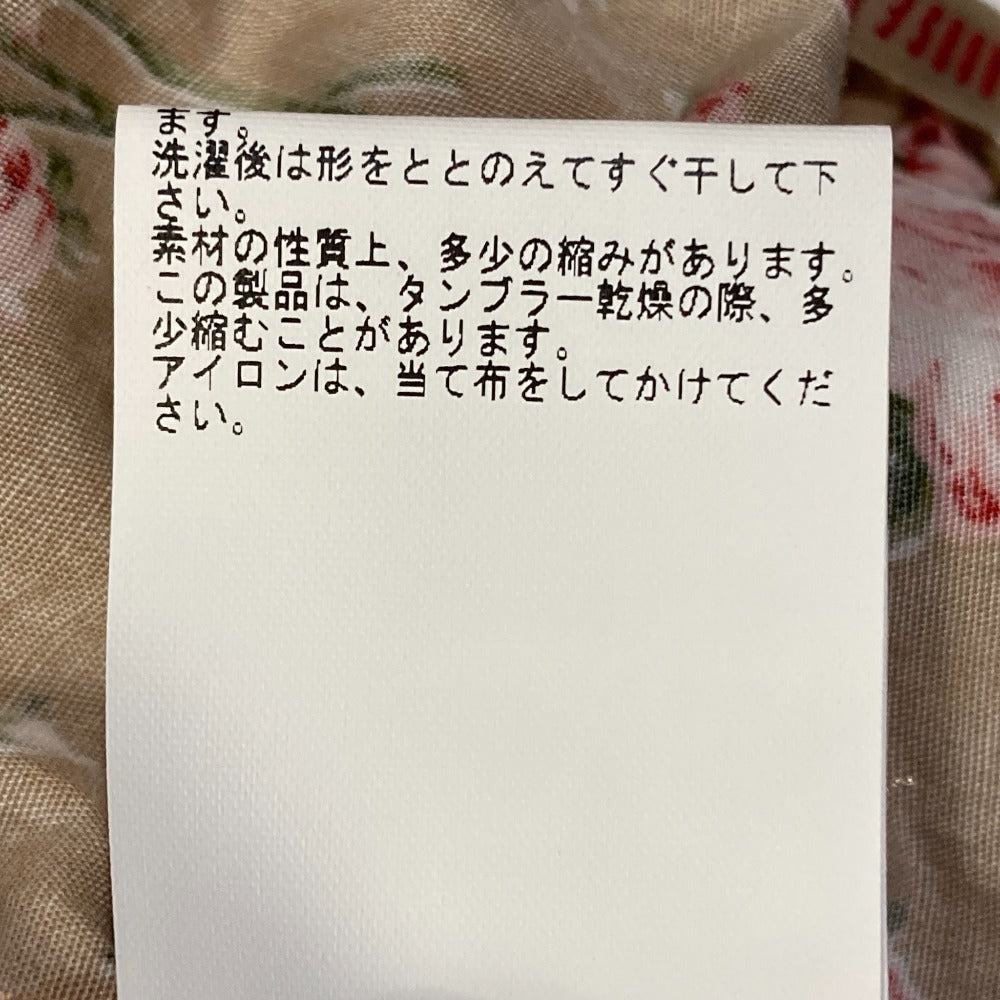 ます。
洗濯後は形をととのえてすぐ干して下
さい。
素材の性質上、多少の縮みがあります。
この製品は、タンブラー乾燥の際、多
少縮むことがあります。
アイロンは、当て布をしてかけてくだ
さい。